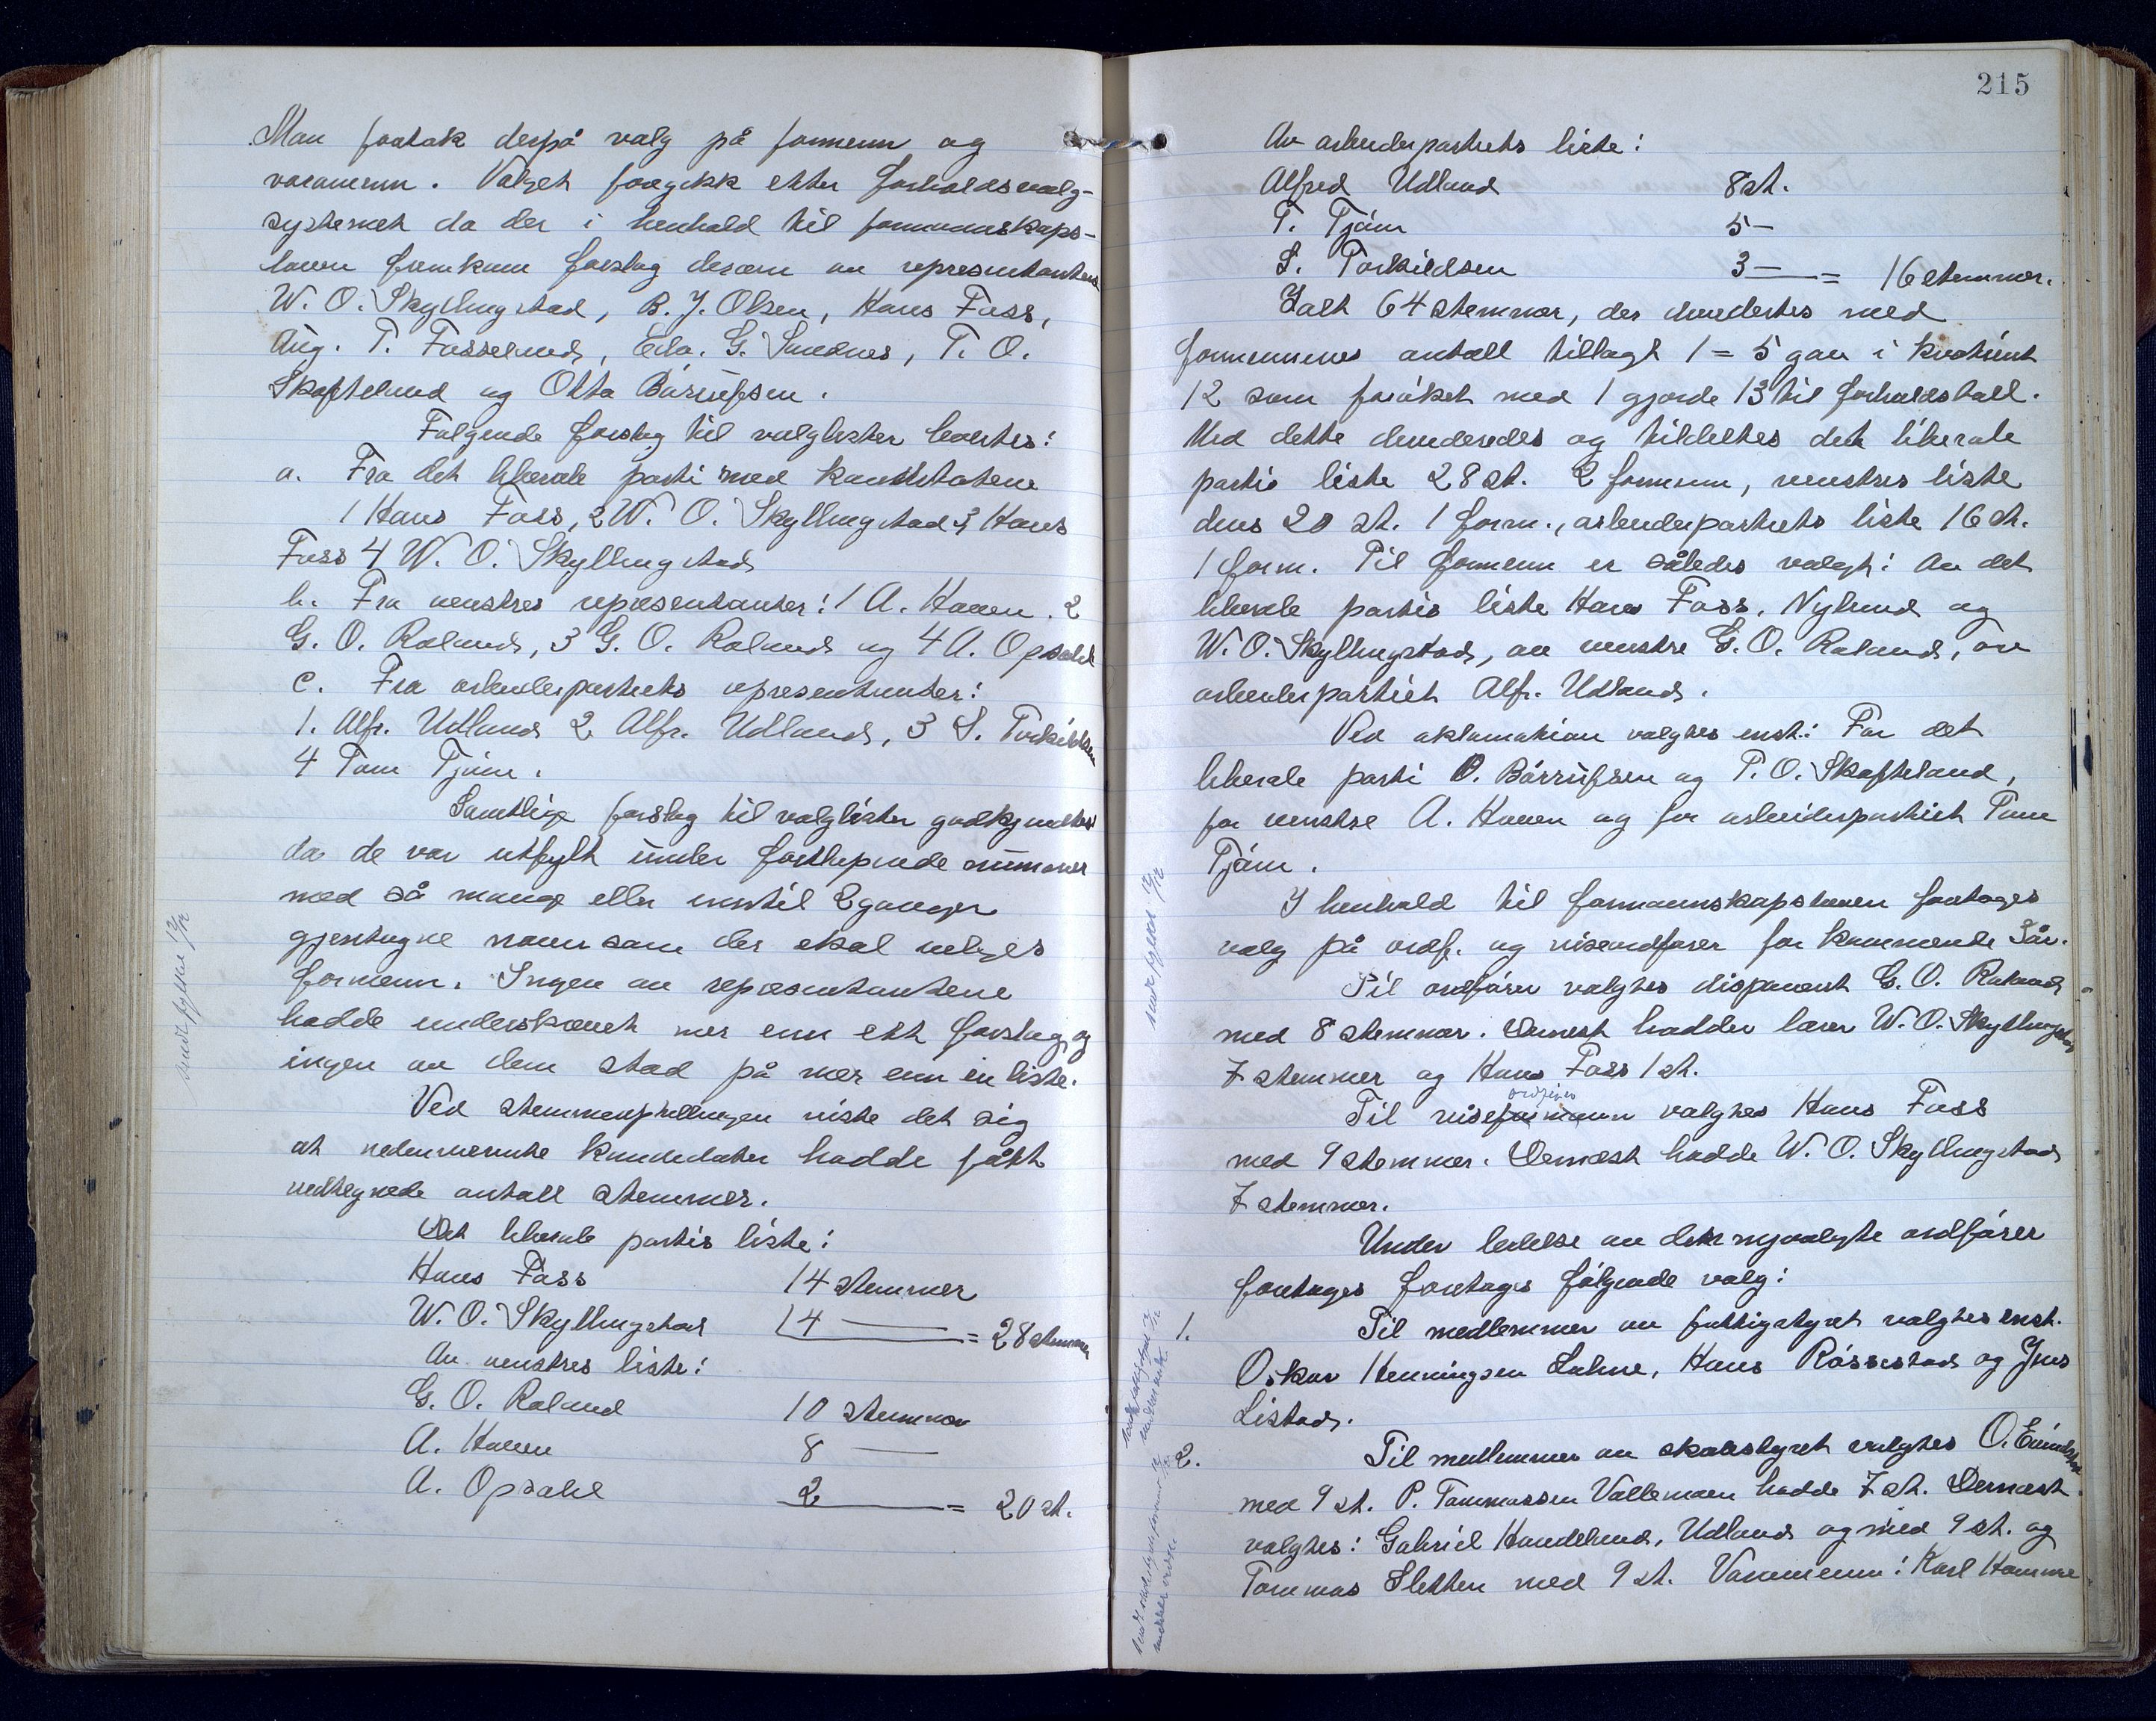 Man foretok derpå valg på formenn og
varamenn. Valget foregikk etter forholdsvalg-
systemet da der i henhold til formannskaps-
loven fremkom forslag derom av representantene
W. O. Skyllingstad, B. J. Olsen, Hans Foss,
Aug. T. Fasseland, Edv. G. Sandnes, T. O.
Skofteland og Otto Bårufsen.
Følgende forslag til valglister levertes:
a. Fra det liberale parti med kandidatene
1 Hans Foss, 2 W. O. Skyllingstad 3 Hans
Foss 4 W. O. Skyllingstad
b. Fra venstres representanter: 1 A. Haven. 2
G. O. Røland, 3 G. O. Røland og 4 A. Opsahl
c. Fra arbeiderpartiets representanter:
1. Alfr. Udland 2 Alfr. Udland, 3 S. Torkildsen
4 Tom Tjåm.
Samtlige forslag til valglister godkjendtes
da de var utfylt under fortløpende nummer
med så mange eller inntil 2 ganger
gjentagne navn som der skal velges
formenn. Ingen av representantene
hadde underskrevet mer enn ett forslag, og
ingen av dem stod på mer enn en liste.
Ved stemmeoptellingen viste det sig
at nedennevnte kandidater hadde fått
vedtegnede antall stemmer.
Det liberale partis liste:
Hans Foss 14 stemmer
W. O. Skyllingstad 14 — = 28 stemmer
Av venstres liste:
G. O. Røland 10 stemmer
A. Haven 8 —
A. Opsahl 2 — = 20 st.
sendt fylket 12/12
215
Av arbeiderpartiets liste:
Alfred Udland 8 st.
T. Tjåm 5 —
S. Torkildsen 3 — = 16 stemmer.
Ialt 64 stemmer, der divideertes med
formennenes antall tillagt 1 = 5 gav i kvotient
12 som forøket med 1 gjorde 13 til forholdstall.
Ved dette divideredes og tildeltes det liberale
partis liste 28 st. 2 formenn, venstres liste
dens 20 st. 1 form., arbeiderpartiets liste 16 st.
1 form. Til formenn er således valgt: Av det
liberale partis liste Hans Foss, Nylund og
W. O. Skyllingstad, av venstre G. O. Røland, av
arbeiderpartiet Alfr. Udland.
Ved aklamation valgtes enst.: For det
liberale parti O. Bårrufsen og T. O. Skofteland,
for venstre A. Haven og for arbeiderpartiet Tom
Tjåm.
I henhold til formannskapsloven foretoges
valg på ordf. og viseordfører for kommende år.
Til ordfører valgtes disponent G. O. Røland
med 8 stemmer. Dernest hadde lærer W. O. Skyllingstad
7 stemmer og Hans Foss 1 st.
ordfører
Til viseformann valgtes Hans Foss
med 9 stemmer. Dernæst hadde W. O. Skyllingstad
7 stemmer.
Under ledelse av den nyvalgte ordfører
foretoges foretoges følgende valg:
1. Til medlemmer av fattigstyret valgtes enst.
Oskar Henningsen Løhne, Hans Røssestad og Jens
Listad.
2. Til medlemmer av skolestyret valgtes O. Eiindstad
med 9 st. P. Tommassen Vallemoen hadde 7 st. Dernæst
valgtes: Gabriel Haudeland, Udland og med 9 st. og
Tommas Sletten med 9 st. Varamenn: Karl Homme
sendt fylket 12/12